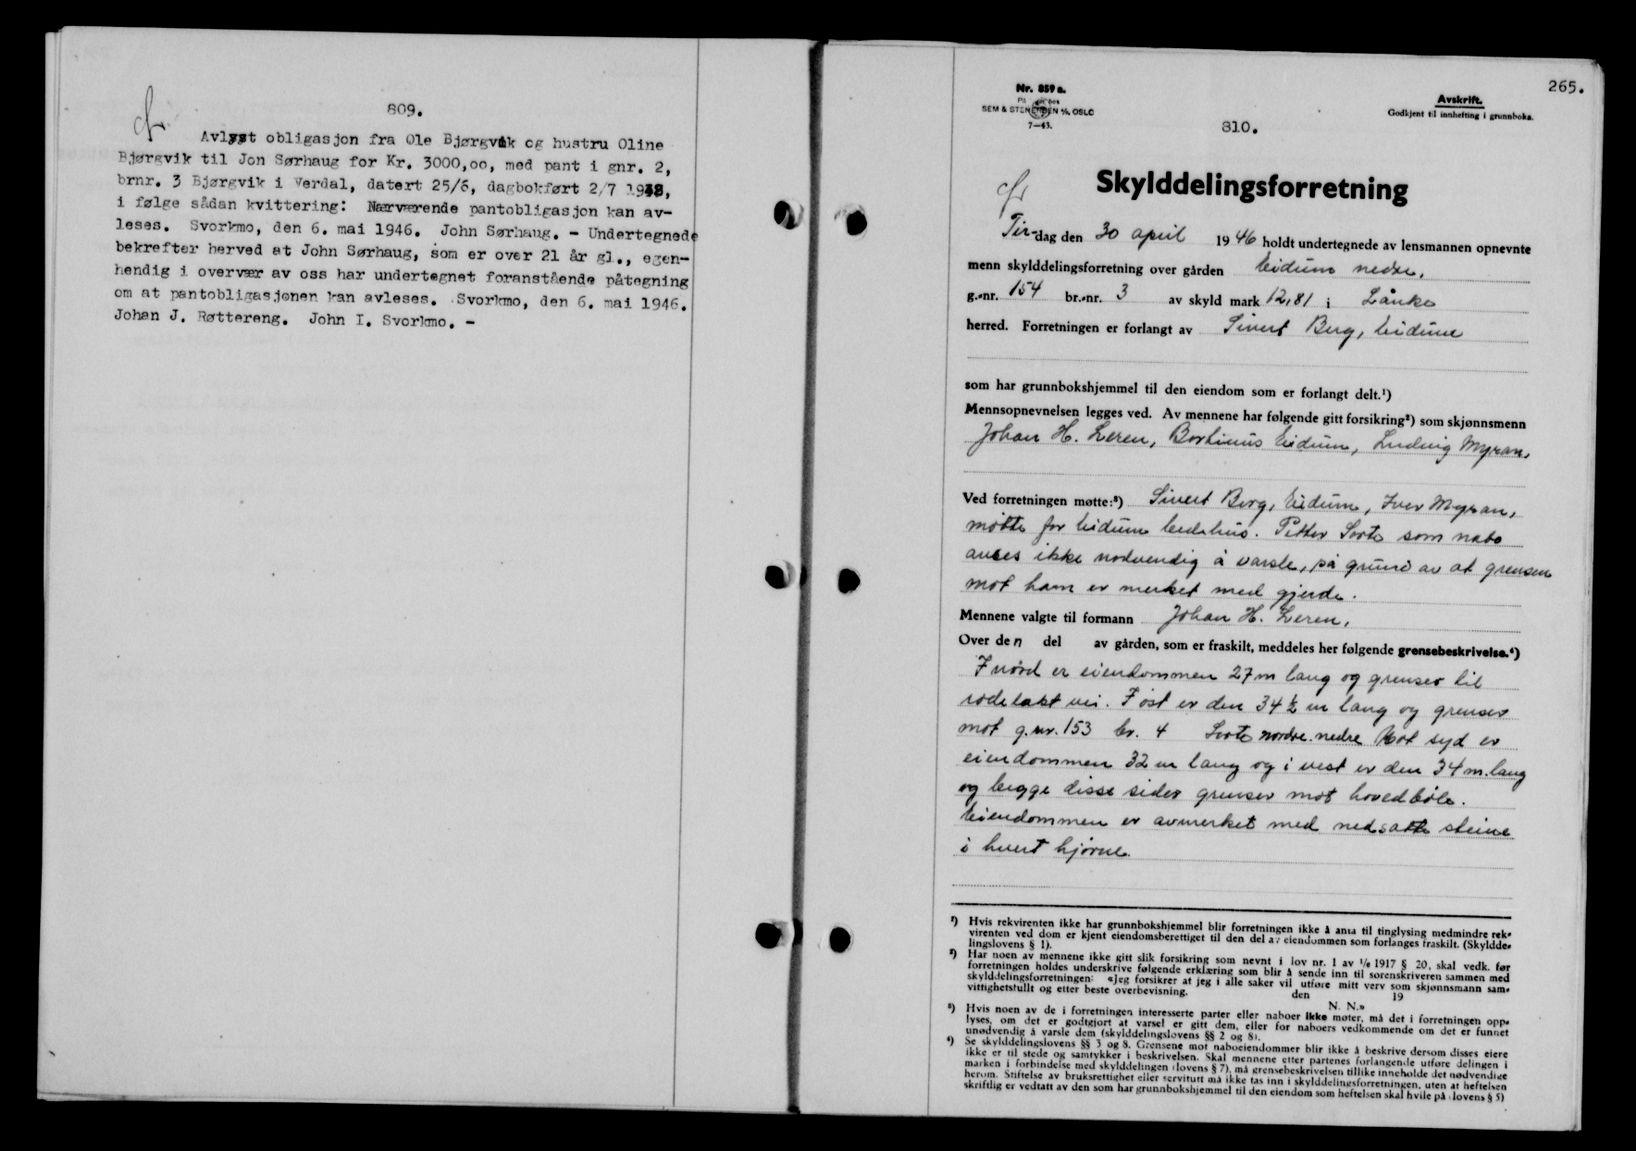 809.
Avlyst obligasjon fra Ole Bjørgvik og hustru Oline
Bjørgvik til Jon Sørhaug for Kr. 3000,oo, med pant i gnr. 2,
brnr. 3 Bjørgvik i Verdal, datert 25/6, dagbokført 2/7 1938,
i følge sådan kvittering: Nærværende pantobligasjon kan av-
leses. Svorkmo, den 6. mai 1946. John Sørhaug. - Undertegnede
bekrefter herved at John Sørhaug, som er over 21 år gl., egen-
hendig i overvær av oss har undertegnet foranstående påtegning
om at pantobligasjonen kan avleses. Svorkmo, den 6. mai 1946.
Johan J. Røttereng. John I. Svorkmo. -
265.
Nr. 859 a.
SEM & STENERSEN A/S, OSLO
7-43.
Avskrift.
Godkjent til innhefting i grunnboka.
810.
Skylddelingsforretning
Tirsdag den 30 april 1946 holdt undertegnede av lensmannen opnevnte
menn skylddelingsforretning over gården Eidum nedre,
g.-nr. 154 br.-nr. 3 av skyld mark 12,81 i Lånke
herred. Forretningen er forlangt av Sivert Berg, Eidum
som har grunnbokshjemmel til den eiendom som er forlangt delt.¹)
Mennsopnevnelsen legges ved. Av mennene har følgende gitt forsikring²) som skjønnsmenn
Johan H. Leren, Bortinus Eidum, Ludvig Myran,
Ved forretningen møtte:³) Sivert Berg, Eidum, Iver Myran,
møtte for Eidum bedehus. Petter Sorte som nabo
anses ikke nødvendig å varsle, på grunn av at grensen
mot ham er merket med gjerde.
Mennene valgte til formann Johan H. Leren,
Over den del av gården, som er fraskilt, meddeles her følgende grensebeskrivelse.⁴)
I nord er eiendommen 27 m lang og grenser til
rodelakt vei. I øst er den 34 ½ m lang og grenser
mot g.nr. 153 br. 4 Sorte nordre nedre Mot syd er
eiendommen 32 m lang og i vest er den 34 m. lang
og begge disse sider grenser mot hovedbøle.
Eiendommen er avmerket med nedsatte steine
i hvert hjørne.
¹) Hvis rekvirenten ikke har grunnbokshjemmel blir forretningen ikke å anta til tinglysing medmindre rek-
virenten ved dom er kjent eiendomsberettiget til den del av eiendommen som forlanges fraskilt. (Skyldde-
lingslovens § 1).
²) Har noen av mennene ikke gitt slik forsikring som nevnt i lov nr. 1 av 1/6 1917 § 20, skal vedk. før
forretningen holdes underskrive følgende erklæring som blir å sende inn til sorenskriveren sammen med
skylddelingsforretningen: «Jeg forsikrer at jeg i alle saker vil utføre mitt verv som skjønnsmann sam-
vittighetsfullt og etter beste overbevisning. den 19
N. N.»
³) Hvis noen av de i forretningen interesserte parter eller naboer ikke møter, må det i forretningen opp-
lyses, om det er godtgjort at varsel er gitt dem, eller for naboers vedkommende om det er funnet
unødvendig å varsle dem (skylddelingslovens §§ 2 og 8).
⁴) Se skylddelingslovens §§ 3 og 8. Grensene mot naboeiendommer blir ikke å beskrive dersom disses eiere
ikke er til stede og samtykker i beskrivelsen. Skal mennene etter partenes forlangende utføre delingen i
marken i forbindelse med skylddelingen (lovens § 7), må grensebeskrivelsen tillike inneholde det nødvendige
herom. Stiftelse av bruksrettighet eller servitutt må ikke tas inn i skylddelingsforretningen, uten at heftelsen
skriftlig er vedtatt av den som har grunnbokshjemmel til den eiendom som heftelsen skal hvile på (lovens § 5)